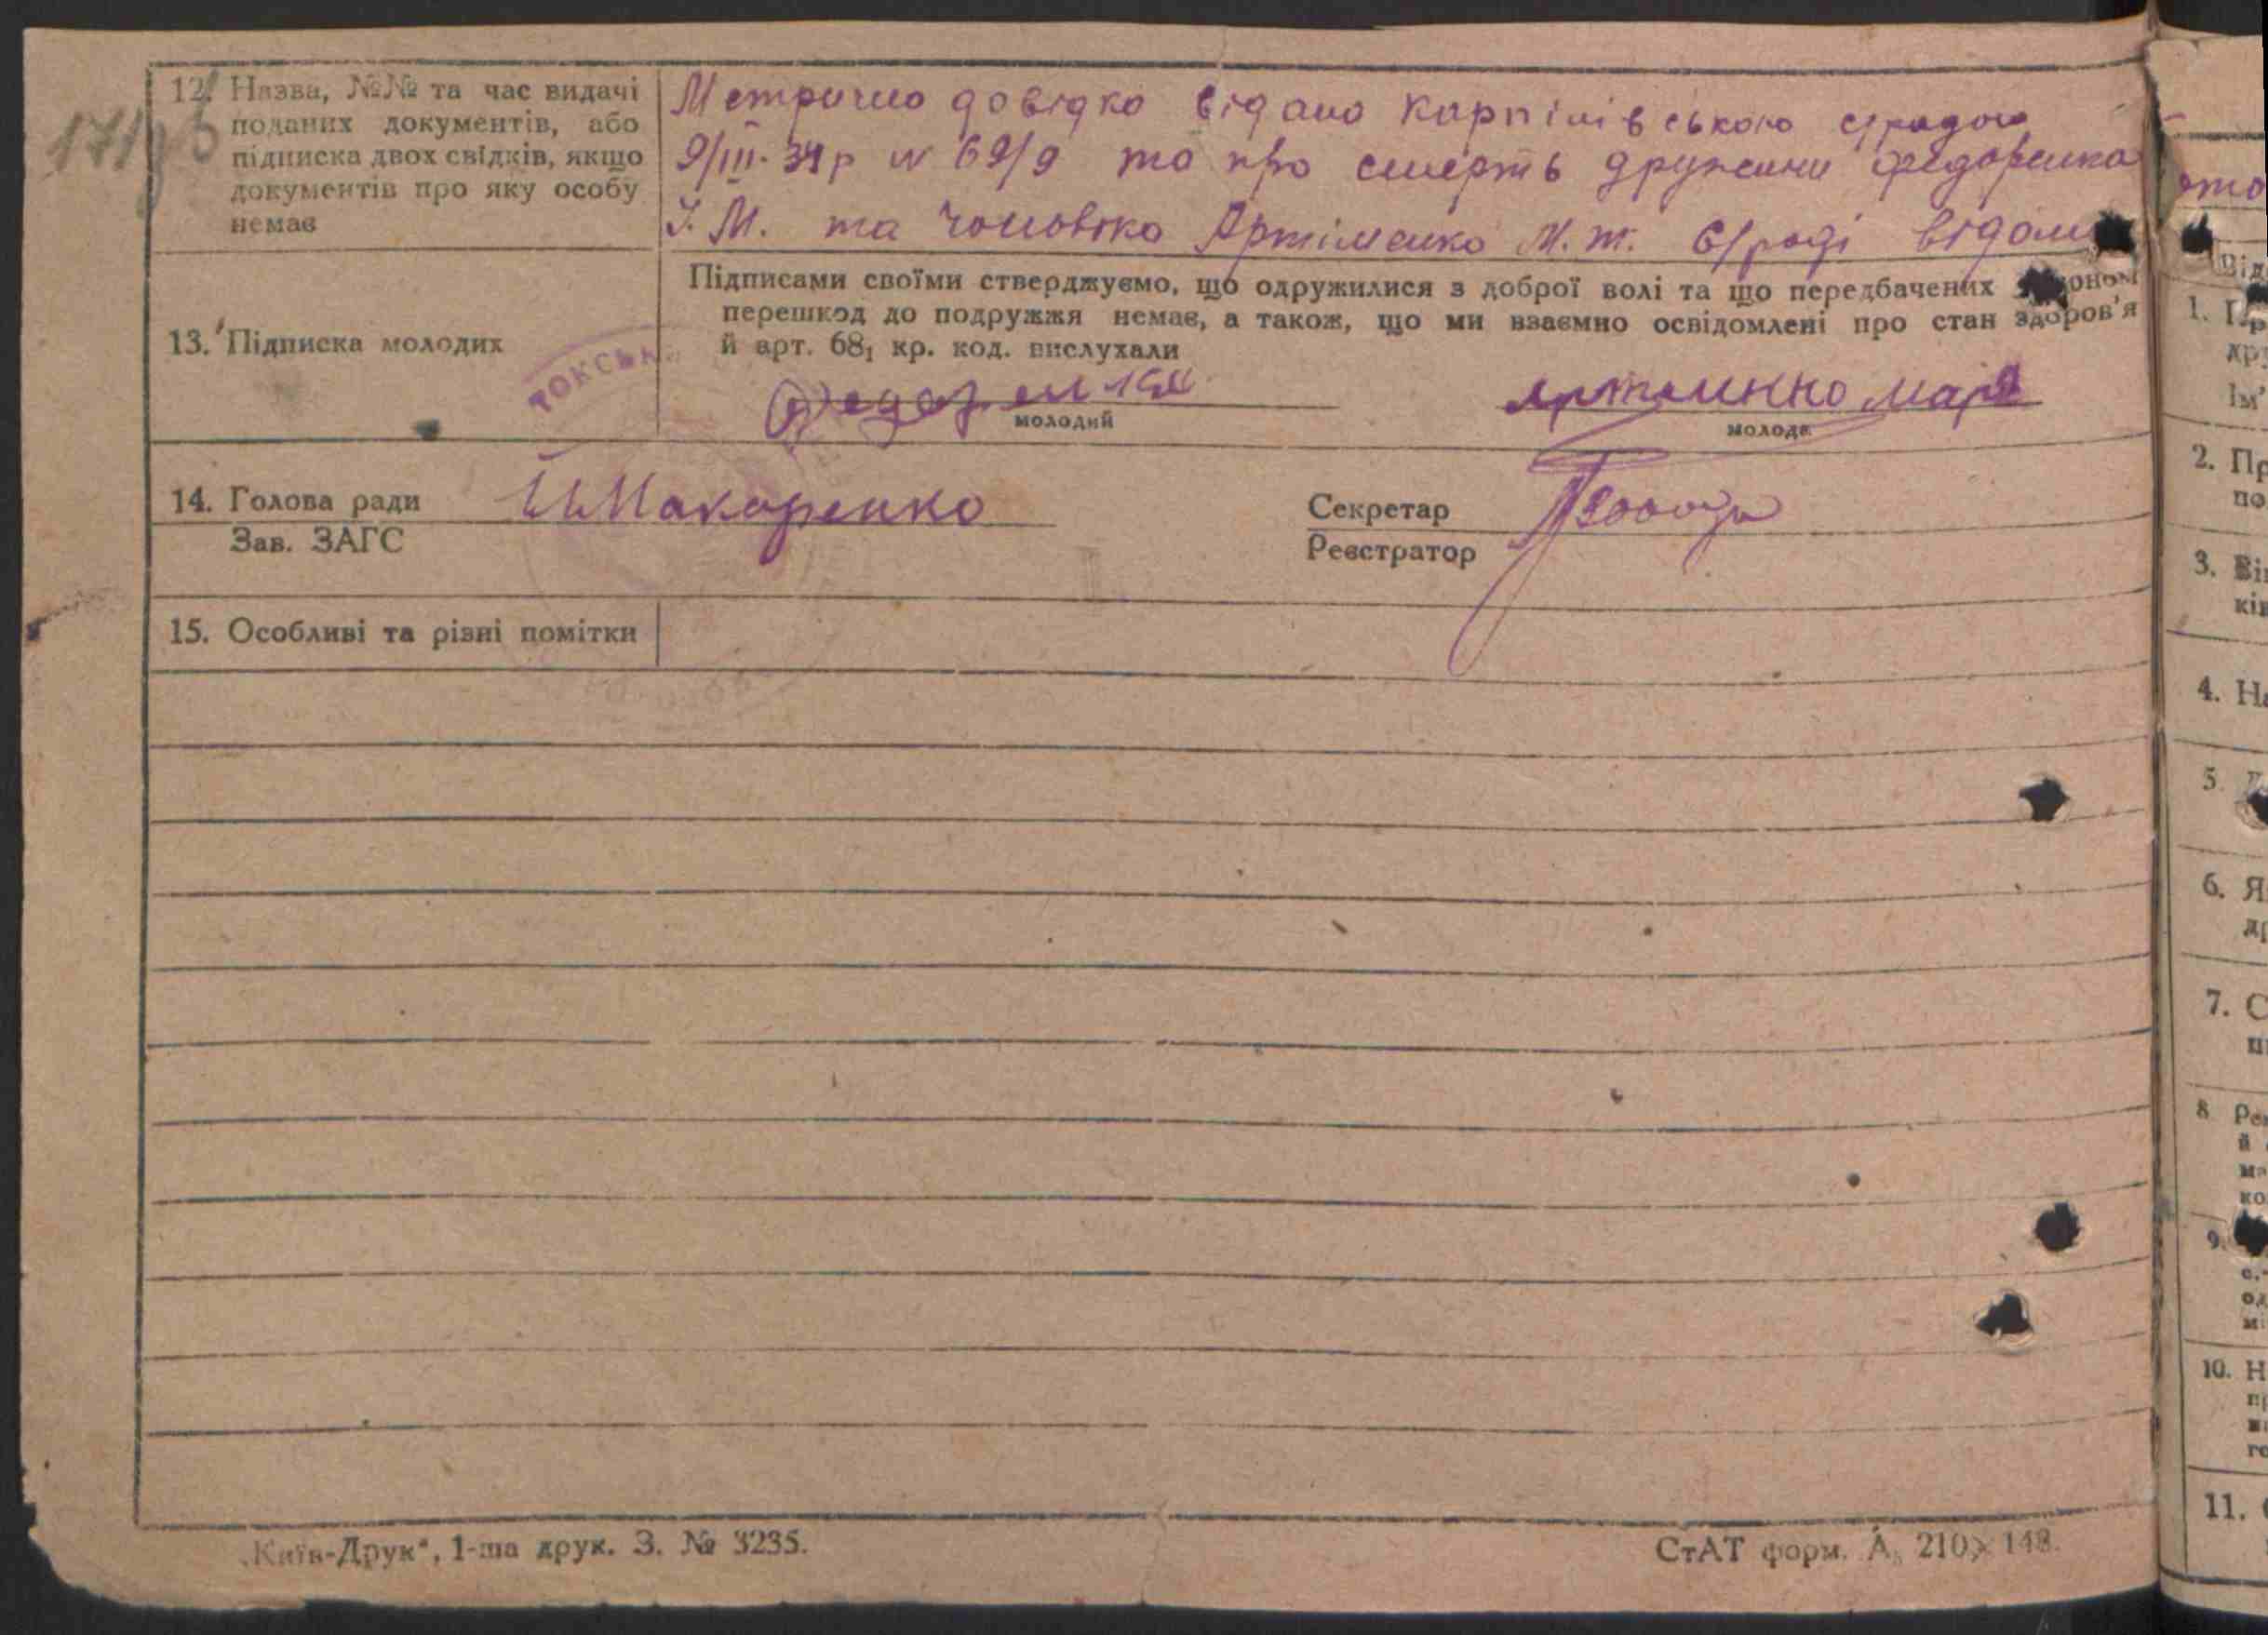 12. Назва, №№ та час видачі
поданих документів, або
підписка двох свідків, якщо
документів про яку особу
немає
Метрична довідка відана Карпилівською с/радою
9/III-34 р N 69/9 та про смерть дружини Федоренка
І. М. та чоловіка Артіменко М. т. с/раді відомо
13. Підписка молодих
Підписами своїми стверджуємо, що одружилися з доброї волі та що передбачених законом
перешкод до подружжя немає, а також, що ми взаємно освідомлені про стан здоров'я
й арт. 68₁ кр. код. вислухали
Федоренко
артеминко Маря
молодий
молода
14. Голова ради
Макаренко
Секретар
Зав. ЗАГС
Реєстратор
15. Особливі та різні помітки
„Київ-Друк“, 1-ша друк. З. № 3235.
СтАТ форм. А₅ 210×148.
1.
Ім'
2. Пр
по
3. Ві
кі
4. На
5.
6. Я
др
7. С
8
9.
10. Н
11.